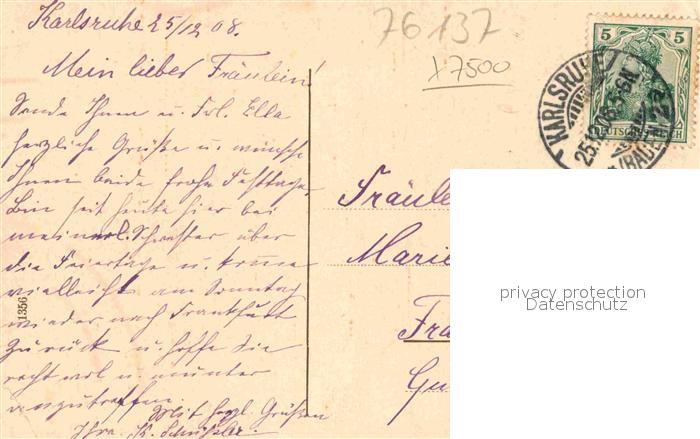 Karlsruhe 25/12 08.
Mein lieber Fräulein!
Sende Ihnen u. Frl. Ella
herzliche Grüße u. wünsche
Ihnen beide frohe Festtage.
Bin seit heute hier bei
meiner l. Schwester über
die Feiertage u. komme
vielleicht am Sonntag
wieder nach Frankfurt
zurück u. hoffe Sie
recht wol u. munter
anzutreffen.
Mit herzl. Grüßen
Ihre K.
76137
17500
5 5
DEUTSCHES REICH
KARLSRUHE
25.12.08.5-6N
(BADEN)
Fräule
Marie
Fra
Gu
1356
privacy protection
Datenschutz